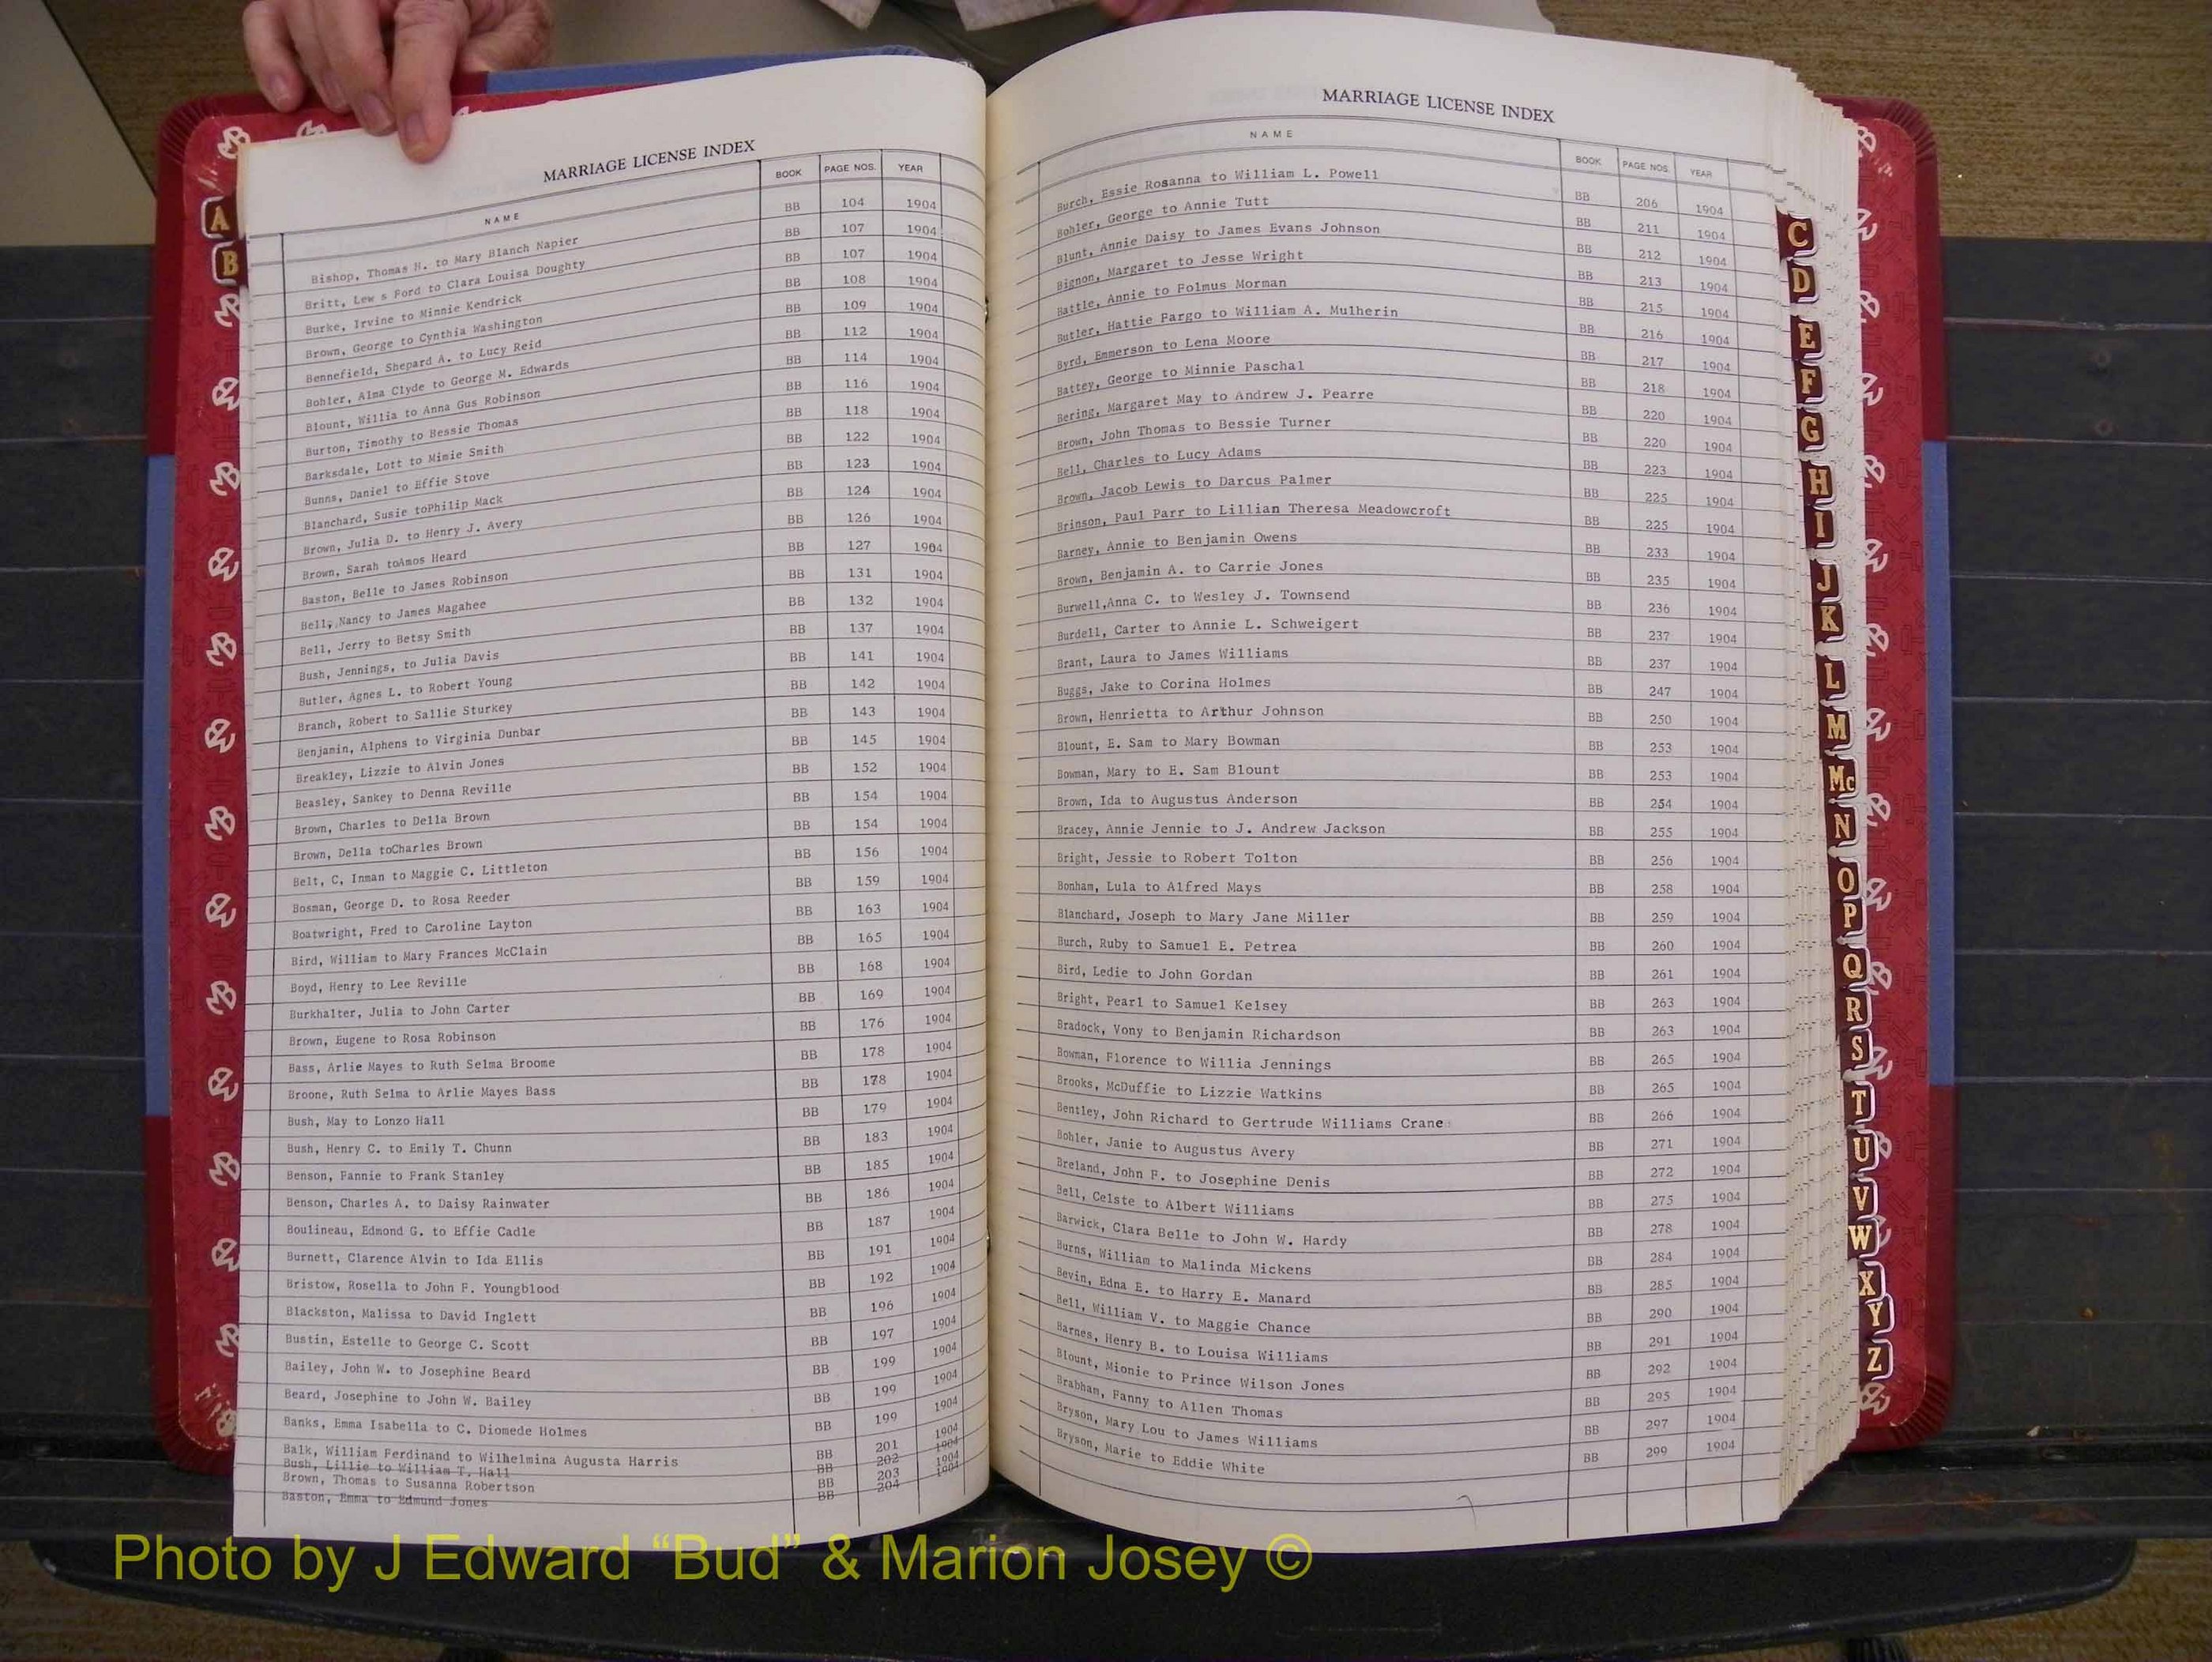 MARRIAGE LICENSE INDEX
NAME BOOK PAGE NOS. YEAR
Bishop, Thomas H. to Mary Blanch Napier BB 104 1904
Britt, Lew s Ford to Clara Louisa Doughty BB 107 1904
Burke, Irvine to Minnie Kendrick BB 107 1904
Brown, George to Cynthia Washington BB 108 1904
Bennefield, Shepard A. to Lucy Reid BB 109 1904
Bohler, Alma Clyde to George M. Edwards BB 112 1904
Blount, Willia to Anna Gus Robinson BB 114 1904
Burton, Timothy to Bessie Thomas BB 116 1904
Barksdale, Lott to Mimie Smith BB 118 1904
Bunns, Daniel to Effie Stove BB 122 1904
Blanchard, Susie toPhilip Mack BB 123 1904
Brown, Julia D. to Henry J. Avery BB 124 1904
Brown, Sarah toAmos Heard BB 126 1904
Baston, Belle to James Robinson BB 127 1904
Bell, Nancy to James Magahee BB 131 1904
Bell, Jerry to Betsy Smith BB 132 1904
Bush, Jennings, to Julia Davis BB 137 1904
Butler, Agnes L. to Robert Young BB 141 1904
Branch, Robert to Sallie Sturkey BB 142 1904
Benjamin, Alphens to Virginia Dunbar BB 143 1904
Breakley, Lizzie to Alvin Jones BB 145 1904
Beasley, Sankey to Denna Reville BB 152 1904
Brown, Charles to Della Brown BB 154 1904
Brown, Della toCharles Brown BB 154 1904
Belt, C, Inman to Maggie C. Littleton BB 156 1904
Bosman, George D. to Rosa Reeder BB 159 1904
Boatwright, Fred to Caroline Layton BB 163 1904
Bird, William to Mary Frances McClain BB 165 1904
Boyd, Henry to Lee Reville BB 168 1904
Burkhalter, Julia to John Carter BB 169 1904
Brown, Eugene to Rosa Robinson BB 176 1904
Bass, Arlie Mayes to Ruth Selma Broome BB 178 1904
Broone, Ruth Selma to Arlie Mayes Bass BB 178 1904
Bush, May to Lonzo Hall BB 179 1904
Bush, Henry C. to Emily T. Chunn BB 183 1904
Benson, Fannie to Frank Stanley BB 185 1904
Benson, Charles A. to Daisy Rainwater BB 186 1904
Boulineau, Edmond G. to Effie Cadle BB 187 1904
Burnett, Clarence Alvin to Ida Ellis BB 191 1904
Bristow, Rosella to John F. Youngblood BB 192 1904
Blackston, Malissa to David Inglett BB 196 1904
Bustin, Estelle to George C. Scott BB 197 1904
Bailey, John W. to Josephine Beard BB 199 1904
Beard, Josephine to John W. Bailey BB 199 1904
Banks, Emma Isabella to C. Diomede Holmes BB 199 1904
Balk, William Ferdinand to Wilhelmina Augusta Harris BB 201 1904
Bush, Lillie to William T. Hall BB 202 1904
Brown, Thomas to Susanna Robertson BB 203 1904
Baston, Emma to Edmund Jones BB 204 1904
MARRIAGE LICENSE INDEX
NAME BOOK PAGE NOS. YEAR
Burch, Essie Rosanna to William L. Powell BB 206 1904
Bohler, George to Annie Tutt BB 211 1904
Blunt, Annie Daisy to James Evans Johnson BB 212 1904
Bignon, Margaret to Jesse Wright BB 213 1904
Battle, Annie to Folmus Morman BB 215 1904
Butler, Hattie Fargo to William A. Mulherin BB 216 1904
Byrd, Emmerson to Lena Moore BB 217 1904
Battey, George to Minnie Paschal BB 218 1904
Bering, Margaret May to Andrew J. Pearre BB 220 1904
Brown, John Thomas to Bessie Turner BB 220 1904
Bell, Charles to Lucy Adams BB 223 1904
Brown, Jacob Lewis to Darcus Palmer BB 225 1904
Brinson, Paul Parr to Lillian Theresa Meadowcroft BB 225 1904
Barney, Annie to Benjamin Owens BB 233 1904
Brown, Benjamin A. to Carrie Jones BB 235 1904
Burwell,Anna C. to Wesley J. Townsend BB 236 1904
Burdell, Carter to Annie L. Schweigert BB 237 1904
Brant, Laura to James Williams BB 237 1904
Buggs, Jake to Corina Holmes BB 247 1904
Brown, Henrietta to Arthur Johnson BB 250 1904
Blount, E. Sam to Mary Bowman BB 253 1904
Bowman, Mary to E. Sam Blount BB 253 1904
Brown, Ida to Augustus Anderson BB 254 1904
Bracey, Annie Jennie to J. Andrew Jackson BB 255 1904
Bright, Jessie to Robert Tolton BB 256 1904
Bonham, Lula to Alfred Mays BB 258 1904
Blanchard, Joseph to Mary Jane Miller BB 259 1904
Burch, Ruby to Samuel E. Petrea BB 260 1904
Bird, Ledie to John Gordan BB 261 1904
Bright, Pearl to Samuel Kelsey BB 263 1904
Bradock, Vony to Benjamin Richardson BB 263 1904
Bowman, Florence to Willia Jennings BB 265 1904
Brooks, McDuffie to Lizzie Watkins BB 265 1904
Bentley, John Richard to Gertrude Williams Crane BB 266 1904
Bohler, Janie to Augustus Avery BB 271 1904
Breland, John F. to Josephine Denis BB 272 1904
Bell, Celste to Albert Williams BB 275 1904
Barwick, Clara Belle to John W. Hardy BB 278 1904
Burns, William to Malinda Mickens BB 284 1904
Bevin, Edna E. to Harry E. Manard BB 285 1904
Bell, William V. to Maggie Chance BB 290 1904
Barnes, Henry B. to Louisa Williams BB 291 1904
Blount, Mionie to Prince Wilson Jones BB 292 1904
Brabham, Fanny to Allen Thomas BB 295 1904
Bryson, Mary Lou to James Williams BB 297 1904
Bryson, Marie to Eddie White BB 299 1904
A
B
C
D
E
F
G
H
I
J
K
L
M
Mc
N
O
P
Q
R
S
T
U
V
W
X
Y
Z
Photo by J Edward “Bud” & Marion Josey ©